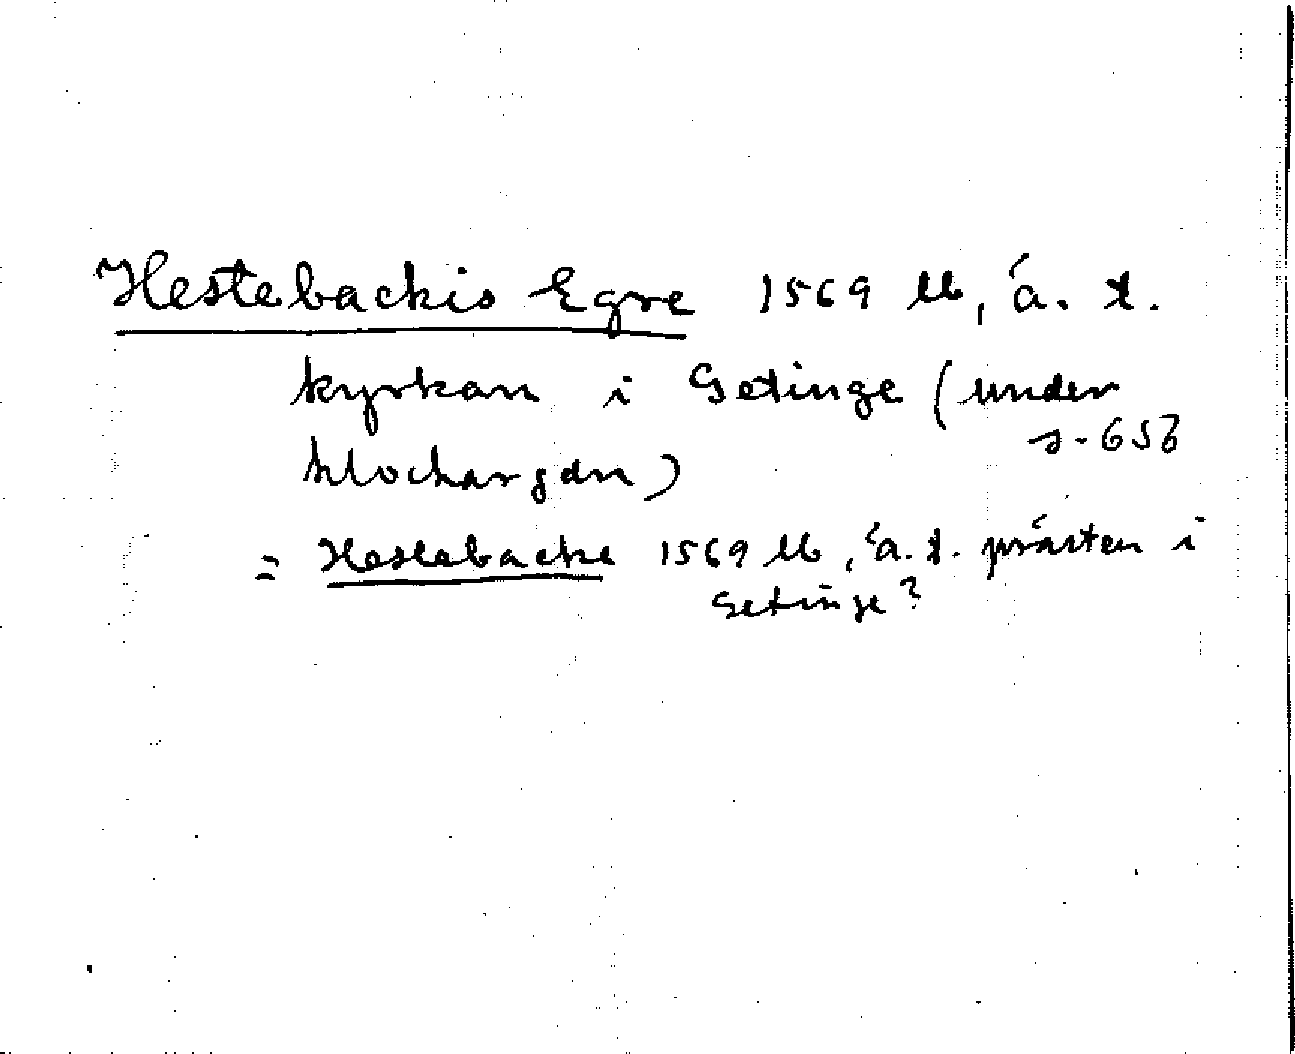 Hestebackis Egre 1569 lb, å. t.
kyrkan i Getinge (under
s. 658
klockargdn)
= Hestebacke 1569 lb, å. t. prästen i
Getinge?